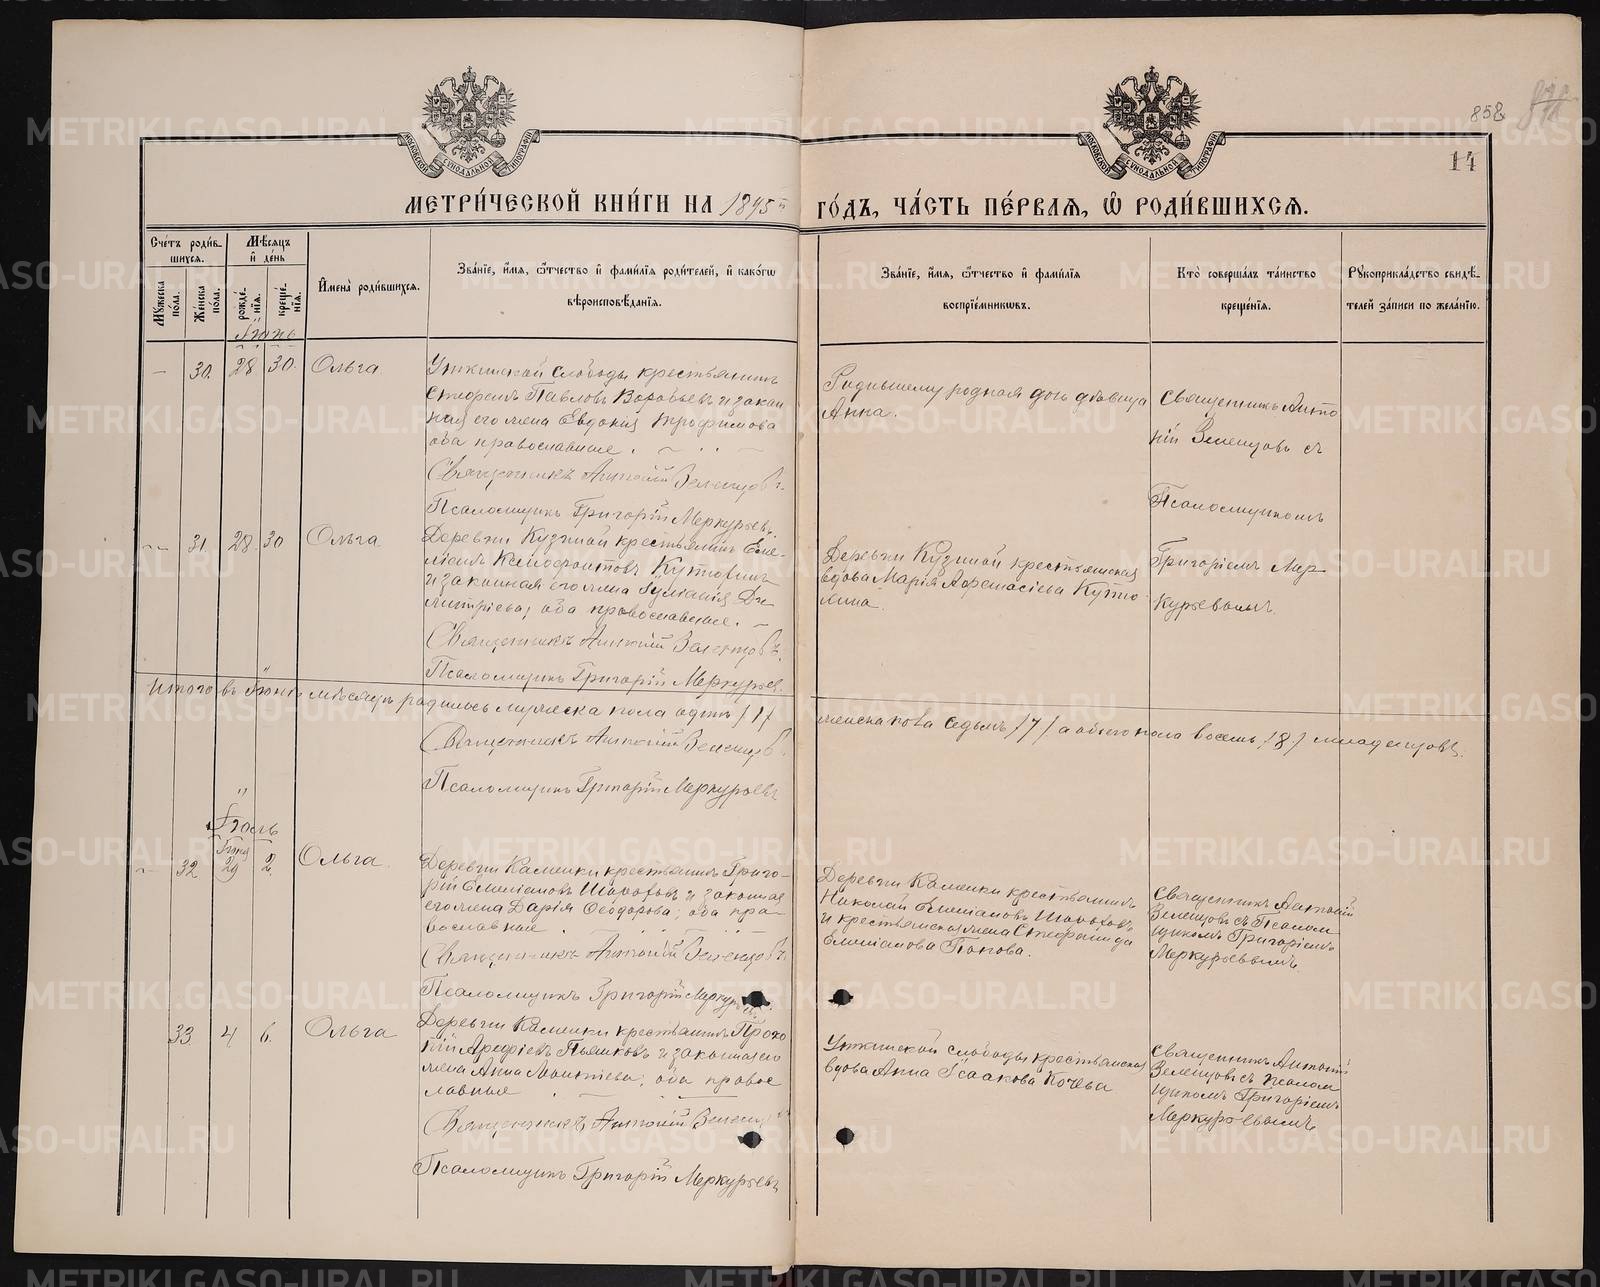 858
14
МЕТРИ́ЧЕСКОЙ КНИ́ГИ НА 1895 ГО́ДЪ, ЧА́СТЬ ПЕ́РВАЯ, Ѡ РОДИ́ВШИХСЯ.
МОСКОВСКОЙ СѴНОДАЛЬНОЙ ТИПОГРАФІИ
МОСКОВСКОЙ СѴНОДАЛЬНОЙ ТИПОГРАФІИ
Сче́тъ роди́вшихся.
Му́жеска по́ла.
Же́нска по́ла.
Мѣ́сяцъ и҆ де́нь
рожде́нїя.
креще́нїя.
И҆мена̀ роди́вшихся.
Зва́нїе, и҆́мя, ѻ҆́тчество и҆ фами́лїя роди́телей, и҆ како́гѡ
вѣроисповѣ́данїя.
Зва́нїе, и҆́мя, ѻ҆́тчество и҆ фами́лїя
воспрїе́мникѡвъ.
Кто̀ соверша́лъ та́инство
креще́нїя.
Рукоприкла́дство свидѣ́-
телей за́писи по жела́нїю.
Іюнь
— 30. 28 30. Ольга
Уткинской слободы крестьянинъ
Стефанъ Павловъ Воробьевъ и закон
ная его жена Евдокія Трофимова
оба православные.
Священникъ Антоній Зеленцовъ.
Псаломщикъ Григорій Меркурьевъ.
Родившему родная дочь дѣвица
Анна.
Священникъ Анто
ній Зеленцовъ съ
Псаломщикомъ
Григоріемъ Мер
курьевымъ.
— 31. 28. 30 Ольга
Деревни Кузиной крестьянинъ Еме-
ліанъ
и законная его жена Іуліанія Ди
митріева, оба православные.
Священникъ Антоній Зеленцовъ.
Псаломщикъ Григорій Меркурьевъ.
Деревни Кузиной крестьянская
вдова Марія Афанасіева
Итого въ Іюнѣ мѣсяцѣ родилось мужеска пола одинъ /1/ женска пола седмь /7/ а обоего пола восемь /8/ младенцовъ.
Священникъ Антоній Зеленцовъ.
Псаломщикъ Григорій Меркурьевъ
Іюль
Іюня
— 32 29 2. Ольга
Деревни Каменки крестьянинъ Григо-
рій Емеліановъ Шороховъ и законная
его жена Дарія Ѳеодорова; оба пра-
вославные
Священникъ Антоній Зеленцовъ.
Псаломщикъ Григорій Меркурьевъ.
Деревни Каменки крестьянинъ
Николай Емеліановъ Шороховъ
и крестьянская жена Стефанида
Емеліанова Попова.
Священникъ Антоній
Зеленцовъ съ Псалом
щикомъ Григоріемъ
Меркурьевымъ.
33 4 6. Ольга
Деревни Каменки крестьянинъ Проко
пій Арефіевъ Пьянковъ и законная его
жена Анна Леонтіева; оба право
славные
Священникъ Антоній Зеленцовъ
Псаломщикъ Григорій Меркурьевъ
Уткинской слободы крестьянская
вдова Анна Ісаакова Кочева
Священникъ Антоній
Зеленцовъ съ псалом
щикомъ Григоріемъ
Меркурьевымъ
METRIKI.GASO-URAL.RU